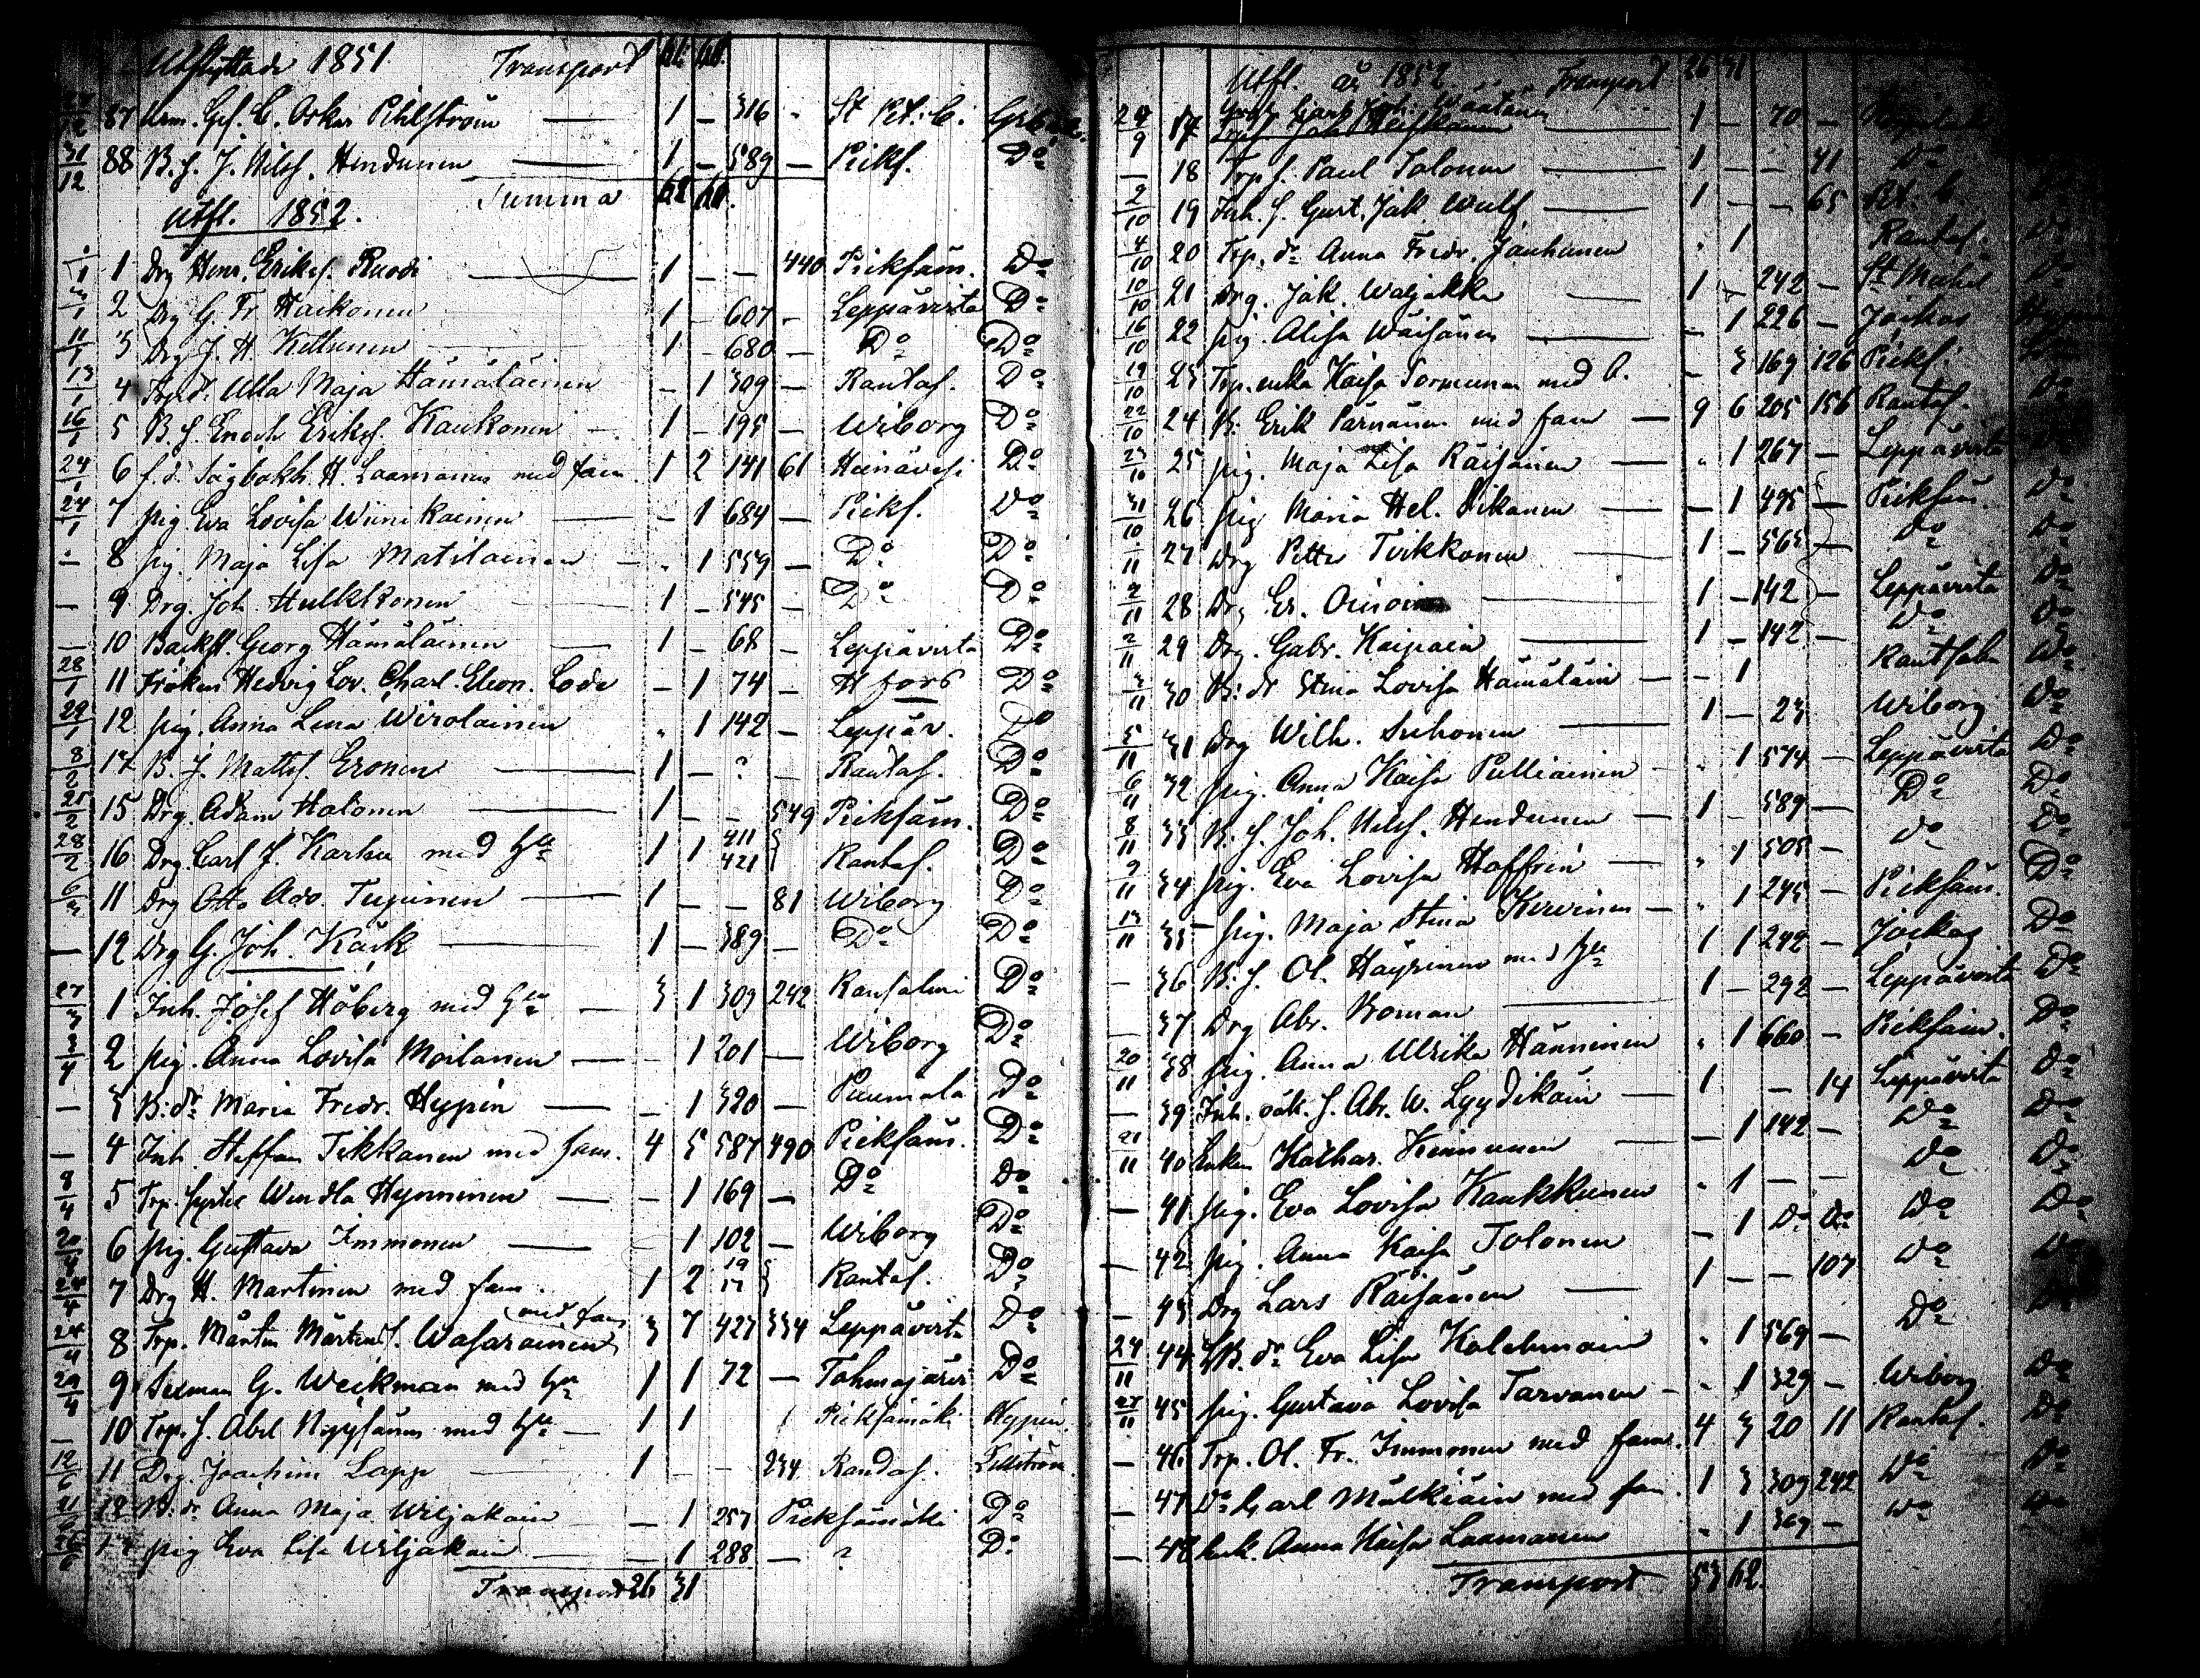 Utflyttade 1851. Transport 61. 60.
87 C. Oskar 1 – 316 – St Pet:b.
31/12 88 B. S. J. Nilss. Hendunen 1 – 589 – Pieks. Do
Summa 62 60.
Utfl. 1852.
1 Drg Henr. Eriks. Ruodi 1 – – 440 Pieksäm. Do
2 Drg G. Fr. Haikonen 1 – 607 – Leppävirta Do
11/1 3 Drg J. H. Kettunen 1 – 680 – Do Do
13/1 4 Trp.dr Ulla Maja Hämäläinen – 1 309 – Rantas. Do
16/1 5 B. S. Enoch Eriks. Kaukonen 1 – 195 – Wiborg Do
24/1 6 f. d. Sågbokh. H. Laamanen med fam. 1 2 141 61 Heinävesi Do
24/1 7 pig Eva Lovisa Wiinikainen – 1 684 – Pieks. Do
– 8 pig. Maja Lisa Matilainen – 1 559 – Do Do
– 9 Drg. Joh. Hulkkonen 1 – 545 – Do Do
– 10 Backst. Georg Hämäläinen 1 – 68 – Leppävirta Do
28/1 11 Fröken Hedvig Lov. Charl. Eleon. Lode – 1 74 – H fors Do
29/1 12 pig. Anna Lena Wirolainen 1 142 – Leppäv. Do
8/2 14 B. S. Matts. Eronen 1 – ? – Rantas. Do
21/2 15 Drg. Adam Halonen 1 – – 549 Pieksäm. Do
28/2 16 Drg. Carl J. Karhu med hu 1 1 411 421 Rantas. Do
6/3 11 Drg Otto Adv. 1 – – 81 Wiborg Do
– 12 Drg G. Joh. Käck 1 – 389 – Do Do
27/3 1 Inh. Josef Höberg med hu 3 1 309 242 Rantsalmi Do
3/4 2 pig. Anna Lovisa Moilanen – 1 201 – Wiborg Do
– 3 B:dr Maria Fredr. Hypén – 1 320 – Puumala Do
– 4 Inh. Staffan Tikkanen med fam. 4 5 587 490 Pieksäm. Do
8/4 5 Trp. Wendla Hynninen – 1 169 – Do Do
20/4 6 pig. Gustava Immonen 1 102 – Wiborg Do
24/4 7 Drg H. Martinen med fam. 1 2 19 17 Rantas. Do
24/4 8 Trp. Mårten Mårtens. Wasarainen med fam 3 7 427 334 Leppävirta Do
29/4 9 G. Weckman med hu 1 1 72 – Tohmajärvi Do
– 10 Trp. S. Abel med hu 1 1 Pieksämäki Hypén
12/6 11 Drg. Joachim Lapp 1 – – 234 Randas.
12 B:dr Anna Maja Wiljakain – 1 257 Pieksämäki Do
pig Eva Lisa Wiljakain – 1 288 – ? Do
Transport 26 31
Utfl. år 1852 Transport 26 31
17 1 – 70 –
– 18 Trp S. Paul Tolonen 1 – – 41 Do
2/10 19 Inh. S. Gust. Jak. Wulf 1 – – 65 Pt. b.
4/10 20 Trp. dr Anna Fredr. Jauhianen 1 Rantas. Do
10/10 21 Drg. Jak. Waljakka 1 – 242 – St Michel Do
16/10 22 pig. Alisa Wäisänen – 1 226 – Joikas
19/10 23 Trp. enka Kaisa Tormunen med b. – 3 169 126 Pieks.
22/10 24 B: Erik Pärnänen med fam 9 6 205 156 Rantas. Do
23/10 25 pig. Maja Lisa Räisänen 1 267 – Leppävirta
31/10 26 pig Maria Hel. Pikanen – 1 495 Pieksäm. Do
27 Drg Petter Tvikkonen 1 – 565 – Do Do
2/11 28 Drg Er. 1 – 142 Leppävirta Do
2/11 29 Drg. Gabr. Kaipain 1 – 142 – Do Do
3/11 30 B:dr Stina Lovisa Hämäläin – 1 Rantsalm Do
5/11 31 Drg Wilh. Suhonen 1 – 23 Wiborg Do
6/11 32 pig. Anna Kaisa Pulliainen 1 574 – Leppävirta Do
8/11 33 B. S. Joh. Nilss. Hendunen 1 589 – Do Do
9/11 34 pig. Eva Lovisa Hoffrén 1 505 – Do Do
13/11 35 pig. Maja Stina Kervinen 1 245 – Pieksäm. Do
– 36 B. S. Ol. Häyrinen med hu 1 1 242 – Joikas Do
– 37 Drg Abr. Broman 1 – 292 – Leppävirta Do
20/11 38 pig. Anna Ulrika Hänninen 1 660 – Pieksäm. Do
– 39 Inh. S. Abr. W. Lyydikäin 1 – 14 Leppävirta Do
21/11 40 Enkan Kathar. Kinnunen – 1 142 – Do Do
– 41 pig. Eva Lovisa Kaukkunen 1 – – Do Do
– 42 pig. Anna Kaisa Tolonen – 1 Do Do Do Do
– 43 Drg Lars Räisänen 1 – – 107 Do Do
24/11 44 B. dr Eva Lisa Kolehmain 1 569 – Do
27/11 45 pig. Gustava Lovisa Tarvanen 1 329 – Wiborg Do
– 46 Trp. Ol. Fr. Immonen med fam. 4 3 20 11 Rantas. Do
– 47 Do Carl Mälkiäin med fam. 1 3 309 242 Do Do
– 48 Enk. Anna Kaisa Laamanen 1 369 – Do Do
Transport 53 62.